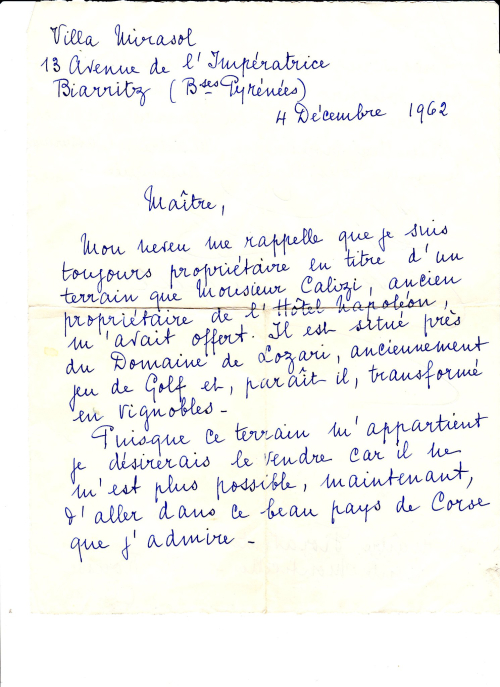 Villa Mirasol
13 Avenue de l'Impératrice
Biarritz (Bses Pyrénées)
4 Décembre 1962
Maître,
Mon neveu me rappelle que je suis
toujours propriétaire en titre d'un
terrain que Monsieur Calizi, ancien
propriétaire de l'Hôtel Napoléon,
m'avait offert. Il est situé près
du Domaine de Lozari, anciennement
jeu de Golf et, paraît il, transformé
en vignobles -
Puisque ce terrain m'appartient
je désirerais le vendre car il ne
m'est plus possible, maintenant,
d'aller dans ce beau pays de Corse
que j'admire -